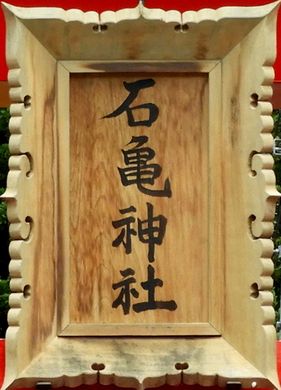 石亀神社